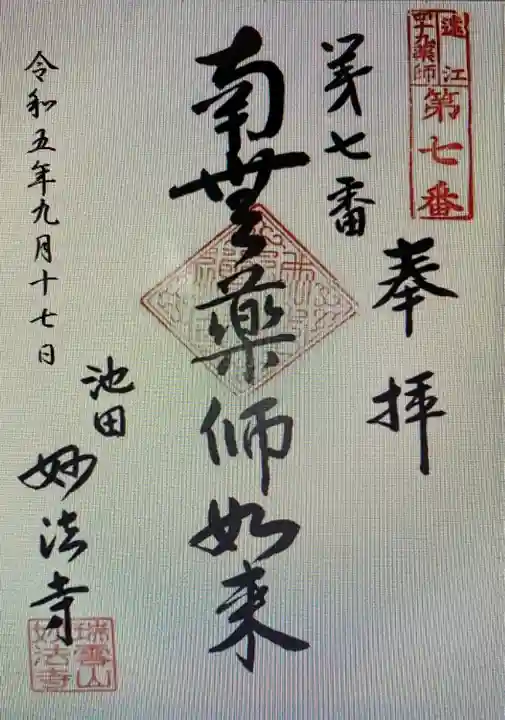 遠江
四十九薬師
第七番
奉拝
第七番
南無薬師如来
池田
妙法寺
令和五年九月十七日
瑞雲山
妙法寺